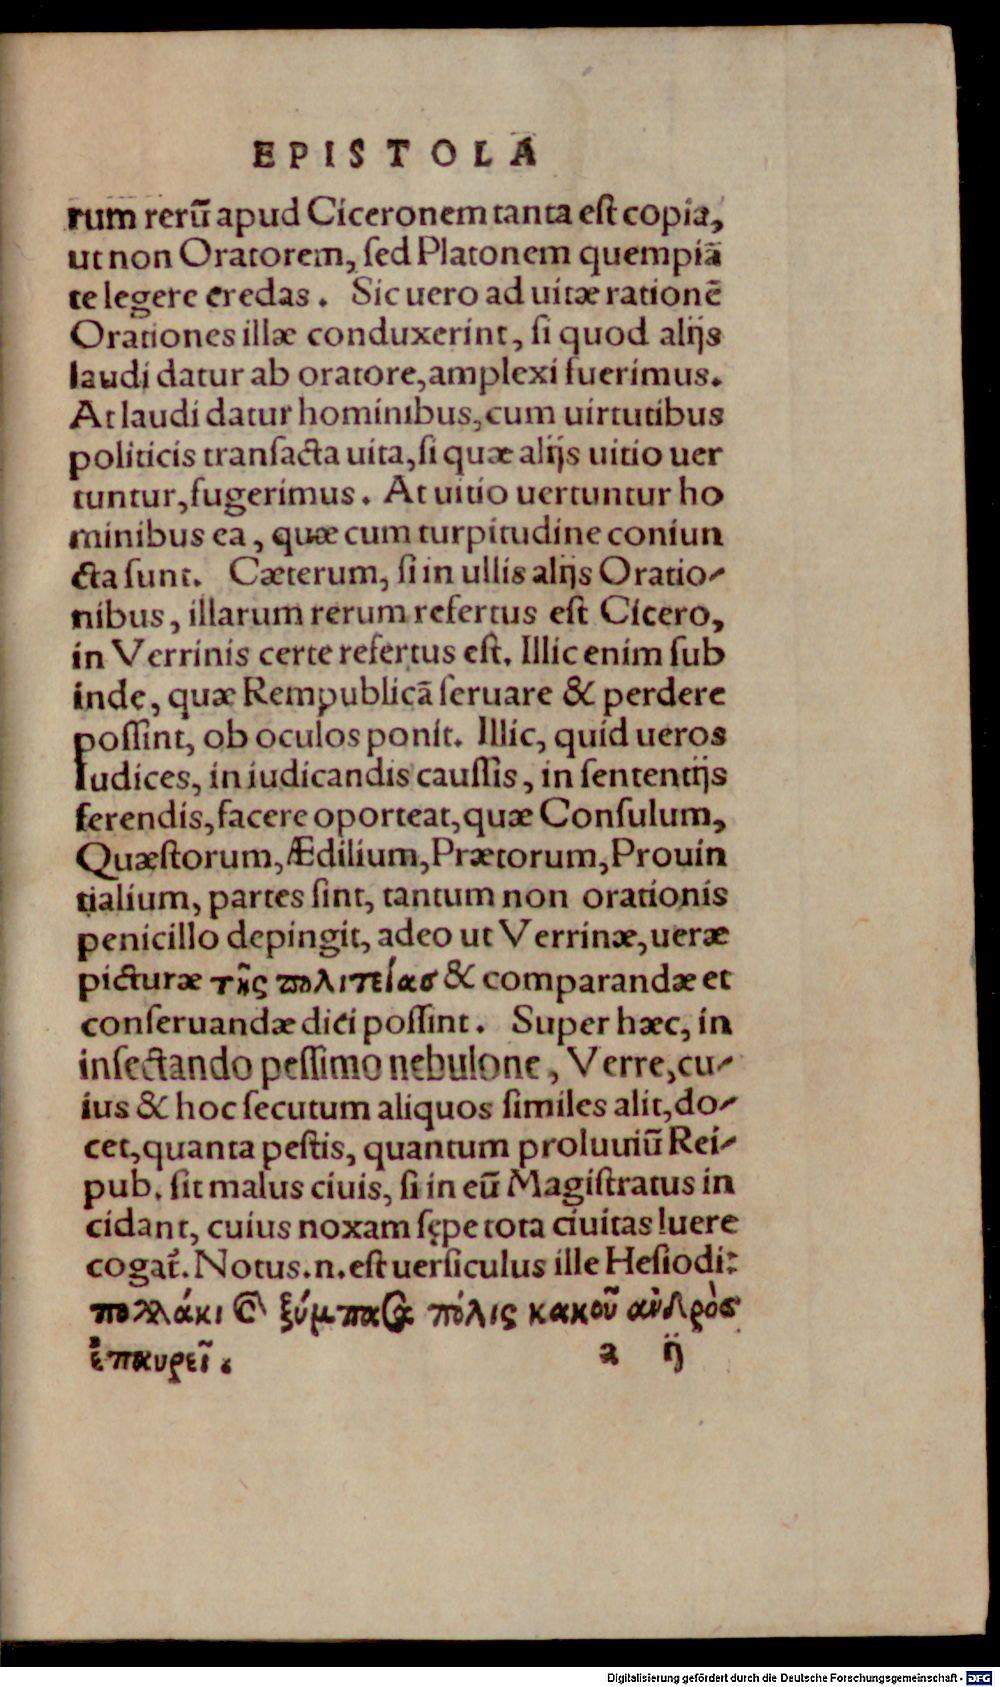 EPISTOLA
rum rerũ apud Ciceronem tanta est copia,
ut non Oratorem, sed Platonem quempiã
te legere credas. Sic uero ad uitæ rationẽ
Orationes illæ conduxerint, si quod alijs
laudi datur ab oratore, amplexi fuerimus.
At laudi datur hominibus, cum uirtutibus
politicis transacta uita, si quæ alijs uitio uer
tuntur, fugerimus. At uitio uertuntur ho
minibus ea, quæ cum turpitudine coniun
cta sunt. Cæterum, si in ullis alijs Oratio-
nibus, illarum rerum refertus est Cicero,
in Verrinis certe refertus est. Illic enim sub
inde, quæ Rempublicã seruare & perdere
possint, ob oculos ponit. Illic, quid ueros
Iudices, in iudicandis caussis, in sententijs
ferendis, facere oporteat, quæ Consulum,
Quæstorum, Ædilium, Prætorum, Prouin
tialium, partes sint, tantum non orationis
penicillo depingit, adeo ut Verrinæ, ueræ
picturæ τῆς πολιτείας & comparandæ et
conseruandæ dici possint. Super hæc, in
insectando pessimo nebulone, Verre, cu-
ius & hoc secutum aliquos similes alit, do-
cet, quanta pestis, quantum proluuiũ Rei-
pub. sit malus ciuis, si in eũ Magistratus in
cidant, cuius noxam sępe tota ciuitas luere
cogat̃. Notus .n. est uersiculus ille Hesiodi:
πολλάκι καὶ ξύμπασα πόλις κακοῦ ἀνδρὸς
ἐπαυρεῖ.
a ij
Digitalisierung gefördert durch die Deutsche Forschungsgemeinschaft - DFG